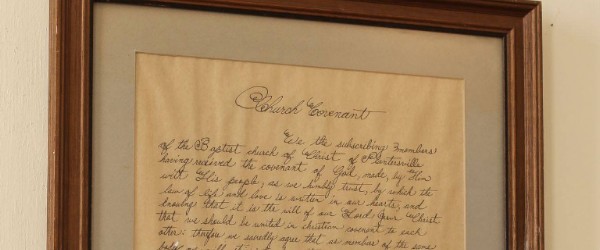 Church Covenant
We the subscribing members
of the Baptist church of Christ of Plantersville
having received the covenant of God, made, by Him
with His people, as we humbly trust, by which the
law of life and love is written in our hearts, and
knowing that it is the will of our Lord Jesus Christ
that we should be united in christian covenant to each
other: therefore we severally agree that as members of the same